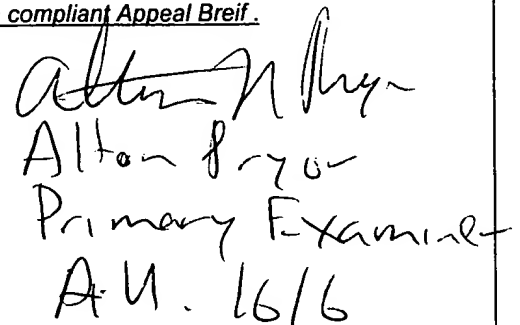 compliant Appeal Breif .
Alton N Pryor
Alton Pryor
Primary Examiner
A.U. 1616